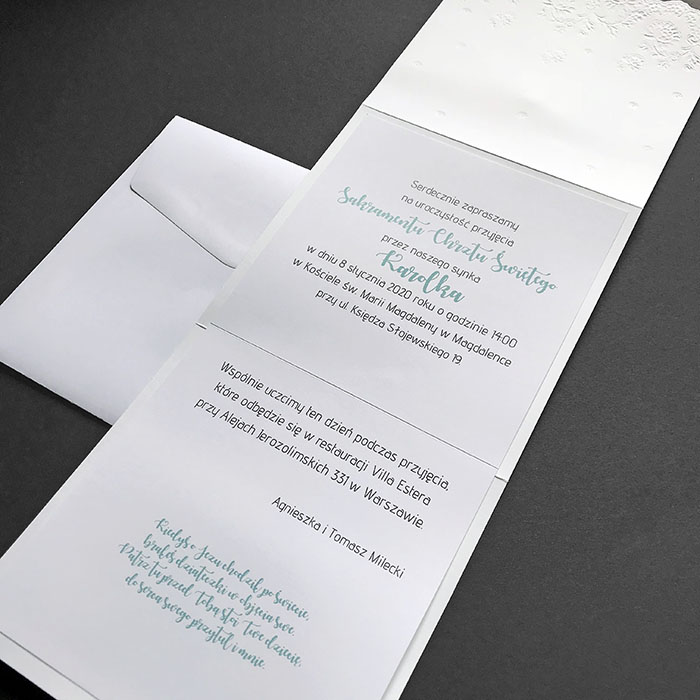 Serdecznie zapraszamy
na uroczystość przyjęcia
Sakramentu Chrztu Świętego
przez naszego synka
Karolka
w dniu 8 stycznia 2020 roku o godzinie 14:00
w Kościele św. Marii Magdaleny w Magdalence
przy ul. Księdza Słojewskiego 19.
Wspólnie uczcimy ten dzień podczas przyjęcia,
które odbędzie się w restauracji Villa Estera
przy Alejach Jerozolimskich 331 w Warszawie.
Agnieszka i Tomasz Milecki
Kiedyś o Jezu chodził po świecie,
brałeś dziateczki w objęcia swe.
Patrz tu przed Tobą stoi Twe dziecię,
do serca swego przytul i mnie.